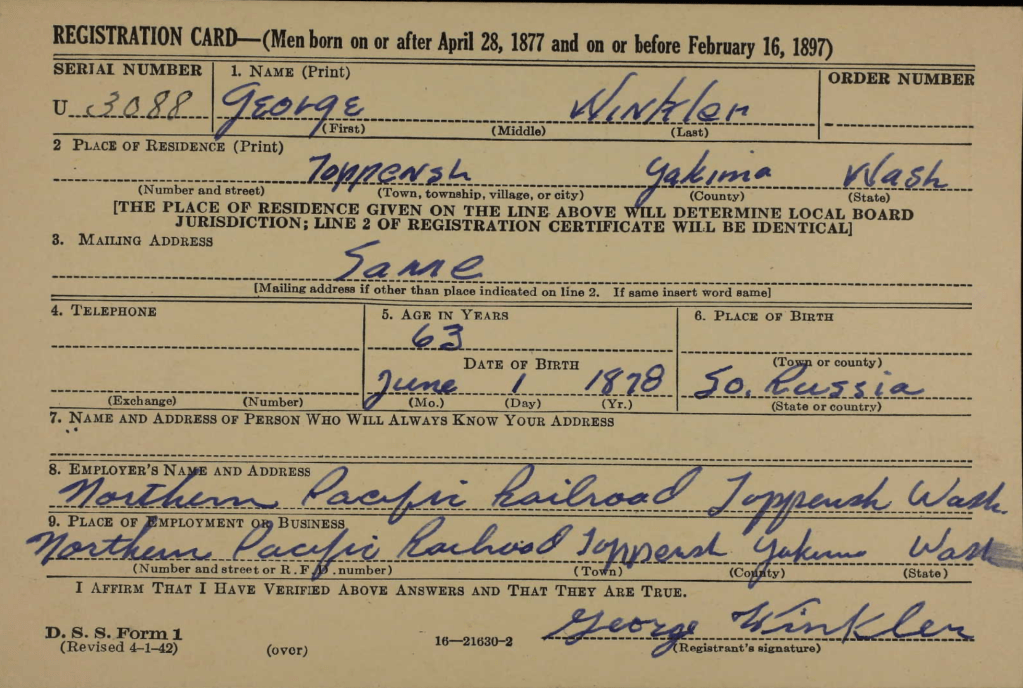 REGISTRATION CARD—(Men born on or after April 28, 1877 and on or before February 16, 1897)
SERIAL NUMBER 1. NAME (Print) ORDER NUMBER
U 3088 George Winkler
(First) (Middle) (Last)
2 PLACE OF RESIDENCE (Print)
Toppenish Yakima Wash
(Number and street) (Town, township, village, or city) (County) (State)
[THE PLACE OF RESIDENCE GIVEN ON THE LINE ABOVE WILL DETERMINE LOCAL BOARD
JURISDICTION; LINE 2 OF REGISTRATION CERTIFICATE WILL BE IDENTICAL]
3. MAILING ADDRESS
Same
[Mailing address if other than place indicated on line 2. If same insert word same]
4. TELEPHONE 5. AGE IN YEARS 6. PLACE OF BIRTH
63
DATE OF BIRTH (Town or county)
June 1 1878 So. Russia
(Exchange) (Number) (Mo.) (Day) (Yr.) (State or country)
7. NAME AND ADDRESS OF PERSON WHO WILL ALWAYS KNOW YOUR ADDRESS
8. EMPLOYER'S NAME AND ADDRESS
Northern Pacific Railroad Toppenish Wash.
9. PLACE OF EMPLOYMENT OR BUSINESS
Northern Pacific Railroad Toppenish Yakima Wash
(Number and street or R. F. D. number) (Town) (County) (State)
I AFFIRM THAT I HAVE VERIFIED ABOVE ANSWERS AND THAT THEY ARE TRUE.
George Winkler
D. S. S. Form 1
(Revised 4-1-42) (over) 16—21630-2 (Registrant's signature)